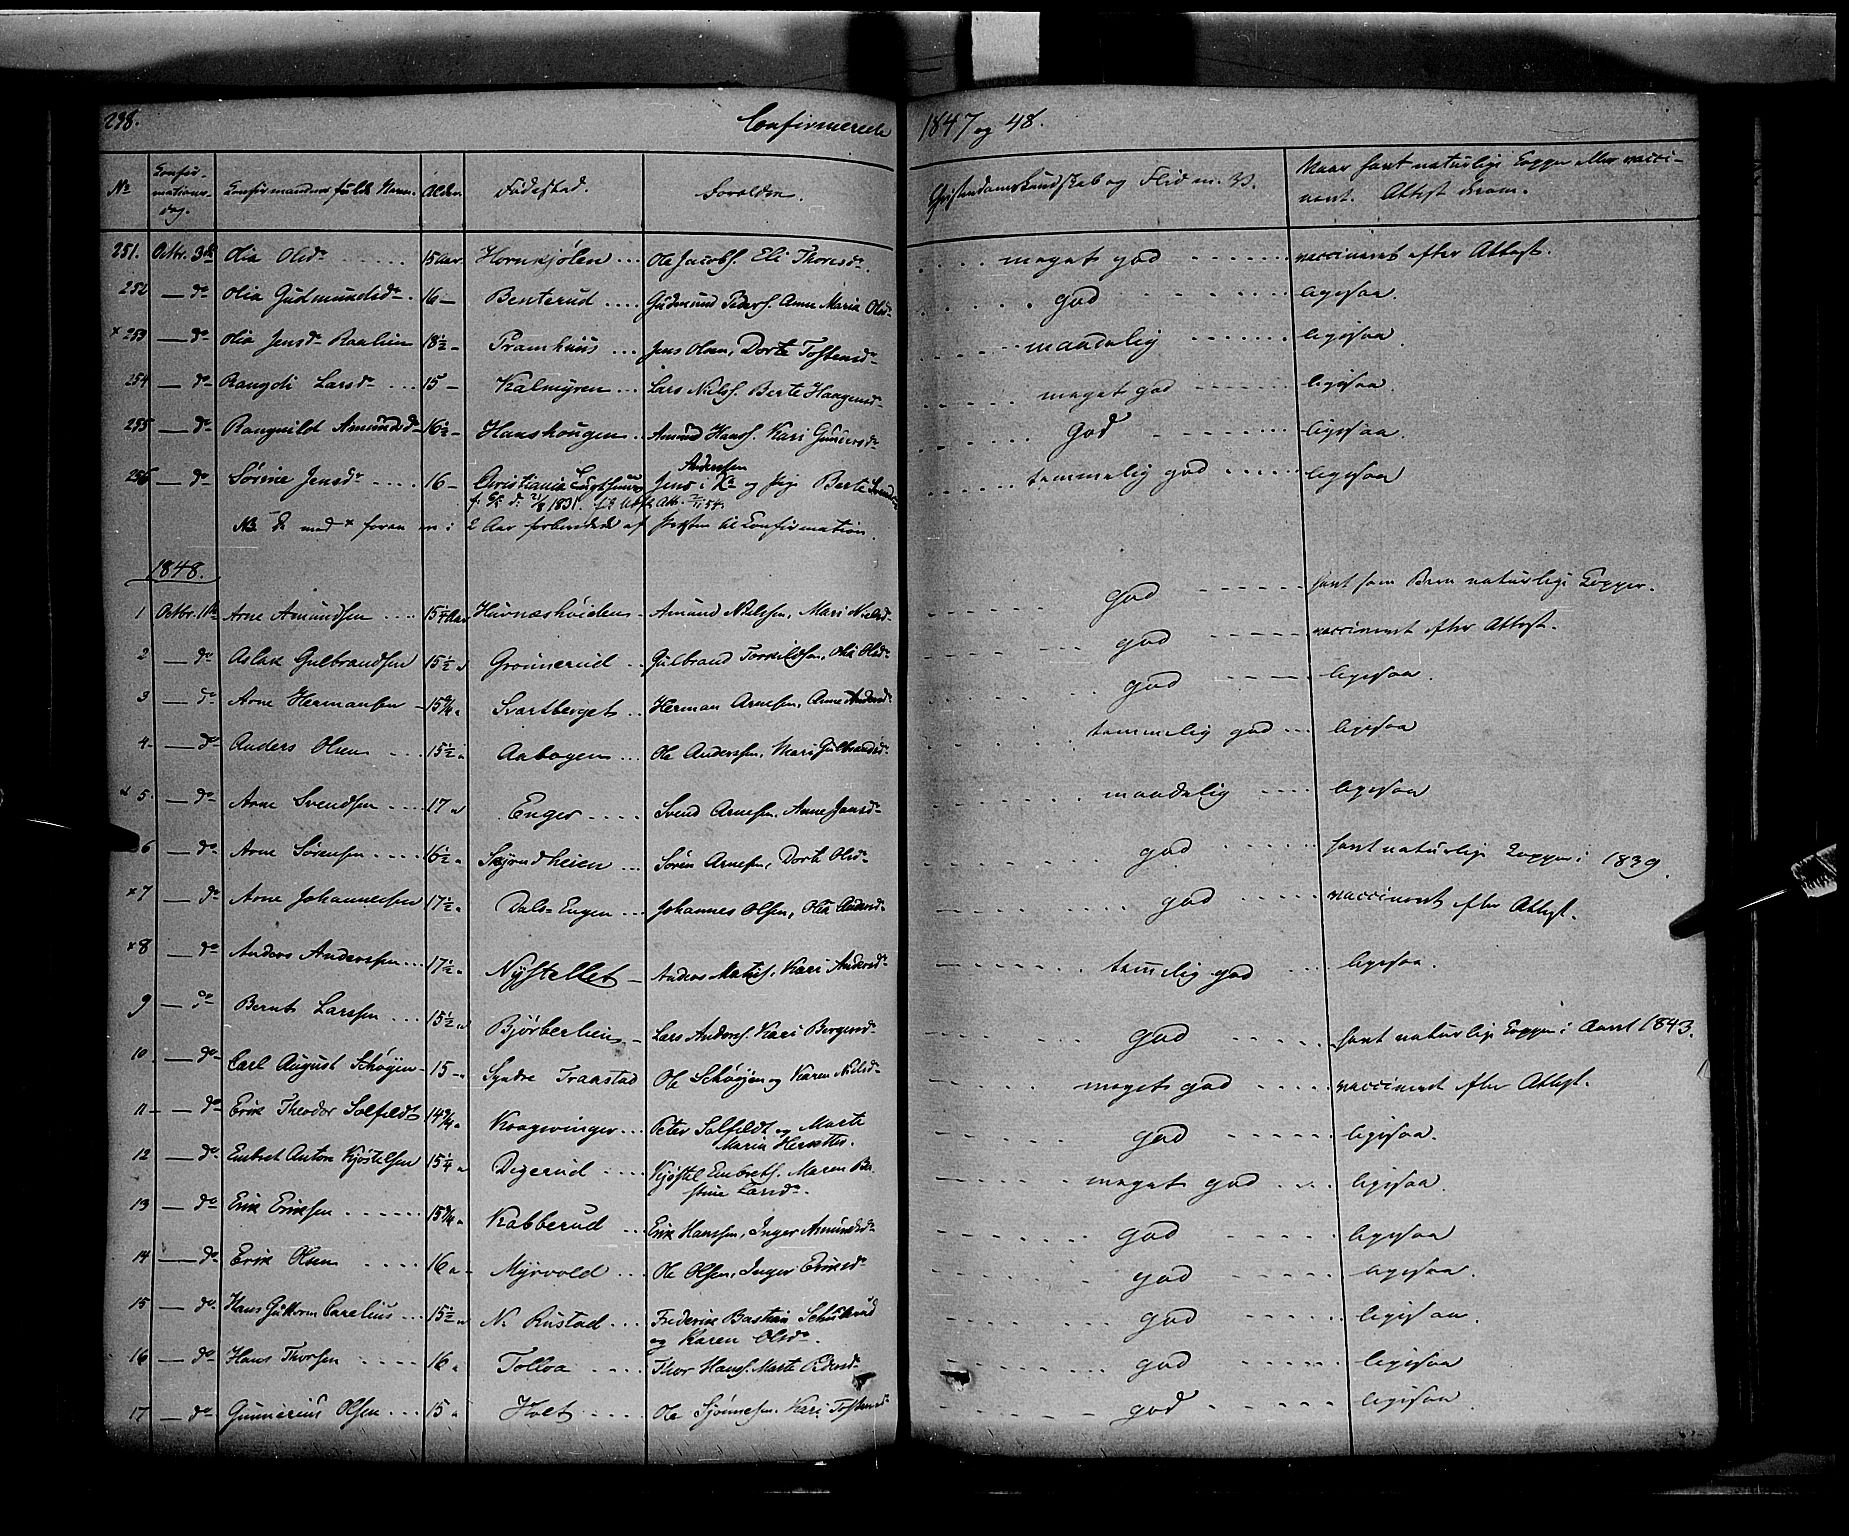 298. Confirmerede 1847 og 48.
No Confirmationsdag. Confirmandens fulde Navn. Alder. Fødested. Forældre. Christendomskundskab og Flid m. V. Naar havt naturlige Kopper eller vaccineret. Attest derom.
251. Octbr. 3die Olia Olsdr 15 Aar Hornkjølen Ole Jacobs. Eli Thoresdr meget god vaccineret efter Attest.
252 — do Olia Gudmundsdr 16 — Benterud Gudmund Peders. Anne Maria Olsdr god ligesaa.
× 253 — do Olia Jensdr 18½ — Pramhuus Jens Olsen, Dorte Tostensdr maadelig ligesaa.
254 — do Rangdi Larsdr 15 — Kalmyren Lars Niels. Berte Haagensdr meget god ligesaa.
255 — do Rangnild Amundsdr 16½ — Hanshougen Amund Hans. Kari Gundersdr God ligesaa.
256 — do Sørine Jensdr 16 — Christiania Jens Anderssen i Ka og Pige Berte temmelig god ligesaa
NB. De med × foran er i 2 Aar forberedede af Præsten til Confirmation.
1848.
1 Octbr. 11te Arne Amundsen 15¼ Aar Havnæshøiden Amund Nielsen, Mari Nielsd. god havt som Barn naturlige Kopper.
2 — do Aslak Gulbrandsen 15½ " Grønnerud Gulbrand Torkildsen, Olia Olsdr god vaccineret efter Attest.
3 — do Arne Hermansen 15¾ " Svartberget Herman Arnesen, Anne Andersdr god ligesaa.
4 — do Anders Olsen 15½ " Aabogen Ole Anderssen, Mari Gulbrandsdr temmelig god ligesaa
× 5. — do Arne Svendsen 17 " Enger Svend Arnesen, Anne Jensdr maadelig ligesaa
6 — do Arne Sørensen 16½ " Skjøndheien Søren Arnesen, Dorte Olsdr god havt naturlige Kopper i 1839.
× 7 — do Arne Johannessen 17½ " Dals-Engen Johannes Olsen, Olia Andersdr god vaccineret efter Attest.
× 8 — do Anders Anderssen 17½ " Nystellet Anders Mathis. Kari Andersdr temelig god ligesaa.
9 — do Bernt Larssen 15½ " Bjørberlien Lars Anders. Kari Borgersdr god havt naturlige Kopper i Aaret 1843.
10 — do Carl August Schøyen 15 " Syndre Traastad Ole Schøyen og Karen Nielsdr meget god vaccineret efter Attest.
11 — do Erik Theodor Solfeldt 14¾ " Kongsvinger Peter Solfeldt og Marte Maria god ligesaa.
12 — do Embret Anton Kjøstelsen 15¼ " Digerud Kjøstel Embrets. Maren Bastine Larsdr meget god ligesaa
13 — do Erik Eriksen 15¾ " Kabberud Erik Hanssen, Inger Amundsdr god ligesaa
14 — do Erik Olsen 16 " Myrvold Ole Olsen, Inger Eriksdr god ligesaa.
15 — do Hans Guttorm Carelius 15½ " N. Rustad Frederik Bastian og Karen Olsdr. god ligesaa.
16 — do Hans Thorsen 16 " Tolloa Thor Hans. Marte Pedersdr god ligesaa
17 — do Gunnerius Olsen 15 " Holt Ole Sjønnesen. Kari Tostensdr god ligesaa.